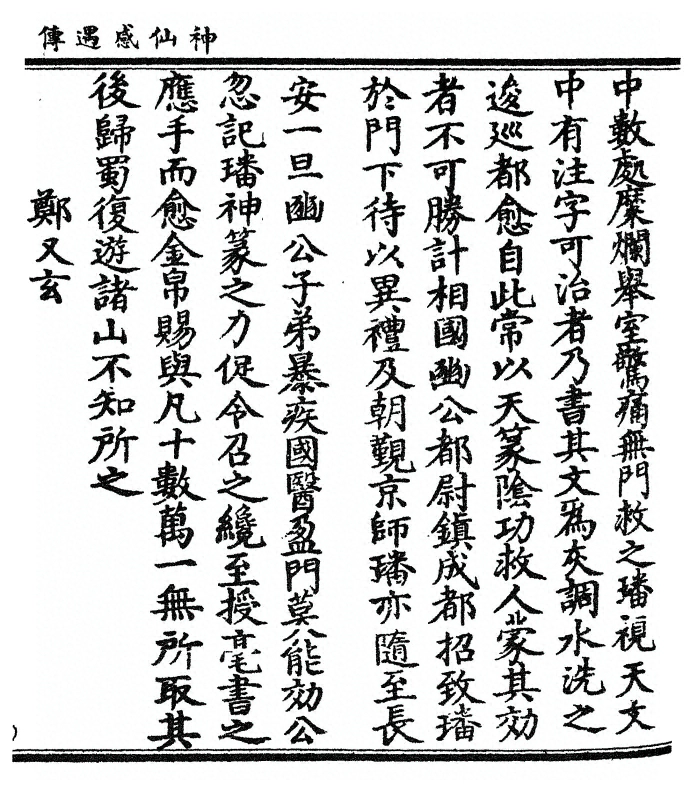 神仙感遇傳
中數處糜爛舉室驚痛無門救之璠視天文
中有注字可治者乃書其文爲灰調水洗之
逡巡都愈自此常以天篆陰功救人蒙其効
者不可勝計相國豳公都尉鎮成都招致璠
於門下待以異禮及朝覲京師璠亦隨至長
安一旦豳公子弟暴疾國醫盈門莫能効公
忽記璠神篆之力促令召之纔至授毫書之
應手而愈金帛賜與凡十數萬一無所取其
後歸蜀復遊諸山不知所之
鄭又玄